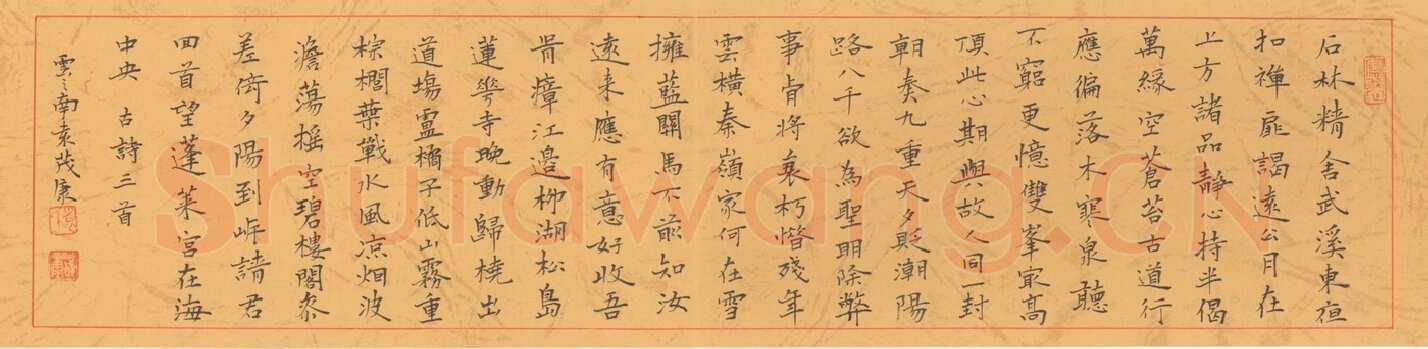 石林精舍武溪東夜
扣禪扉謁遠公月在
上方諸品靜心持半偈
萬緣空蒼苔古道行
應偏落木寒泉聽
不窮更憶雙峯最高
頂此心期與故人同一封
朝奏九重天夕貶潮陽
路八千欲為聖明除弊
事肯將衰朽惜殘年
雲橫秦嶺家何在雪
擁藍關馬不前知汝
遠來應有意好收吾
骨瘴江邊柳湖松島
蓮花寺晚動歸橈出
道場盧橘子低山霧重
棕櫚葉戰水風涼烟波
澹蕩搖空碧樓閣參
差倚夕陽到岸請君
回首望蓬萊宮在海
中央 古詩三首
雲之南袁茂康
Shufawang.CN